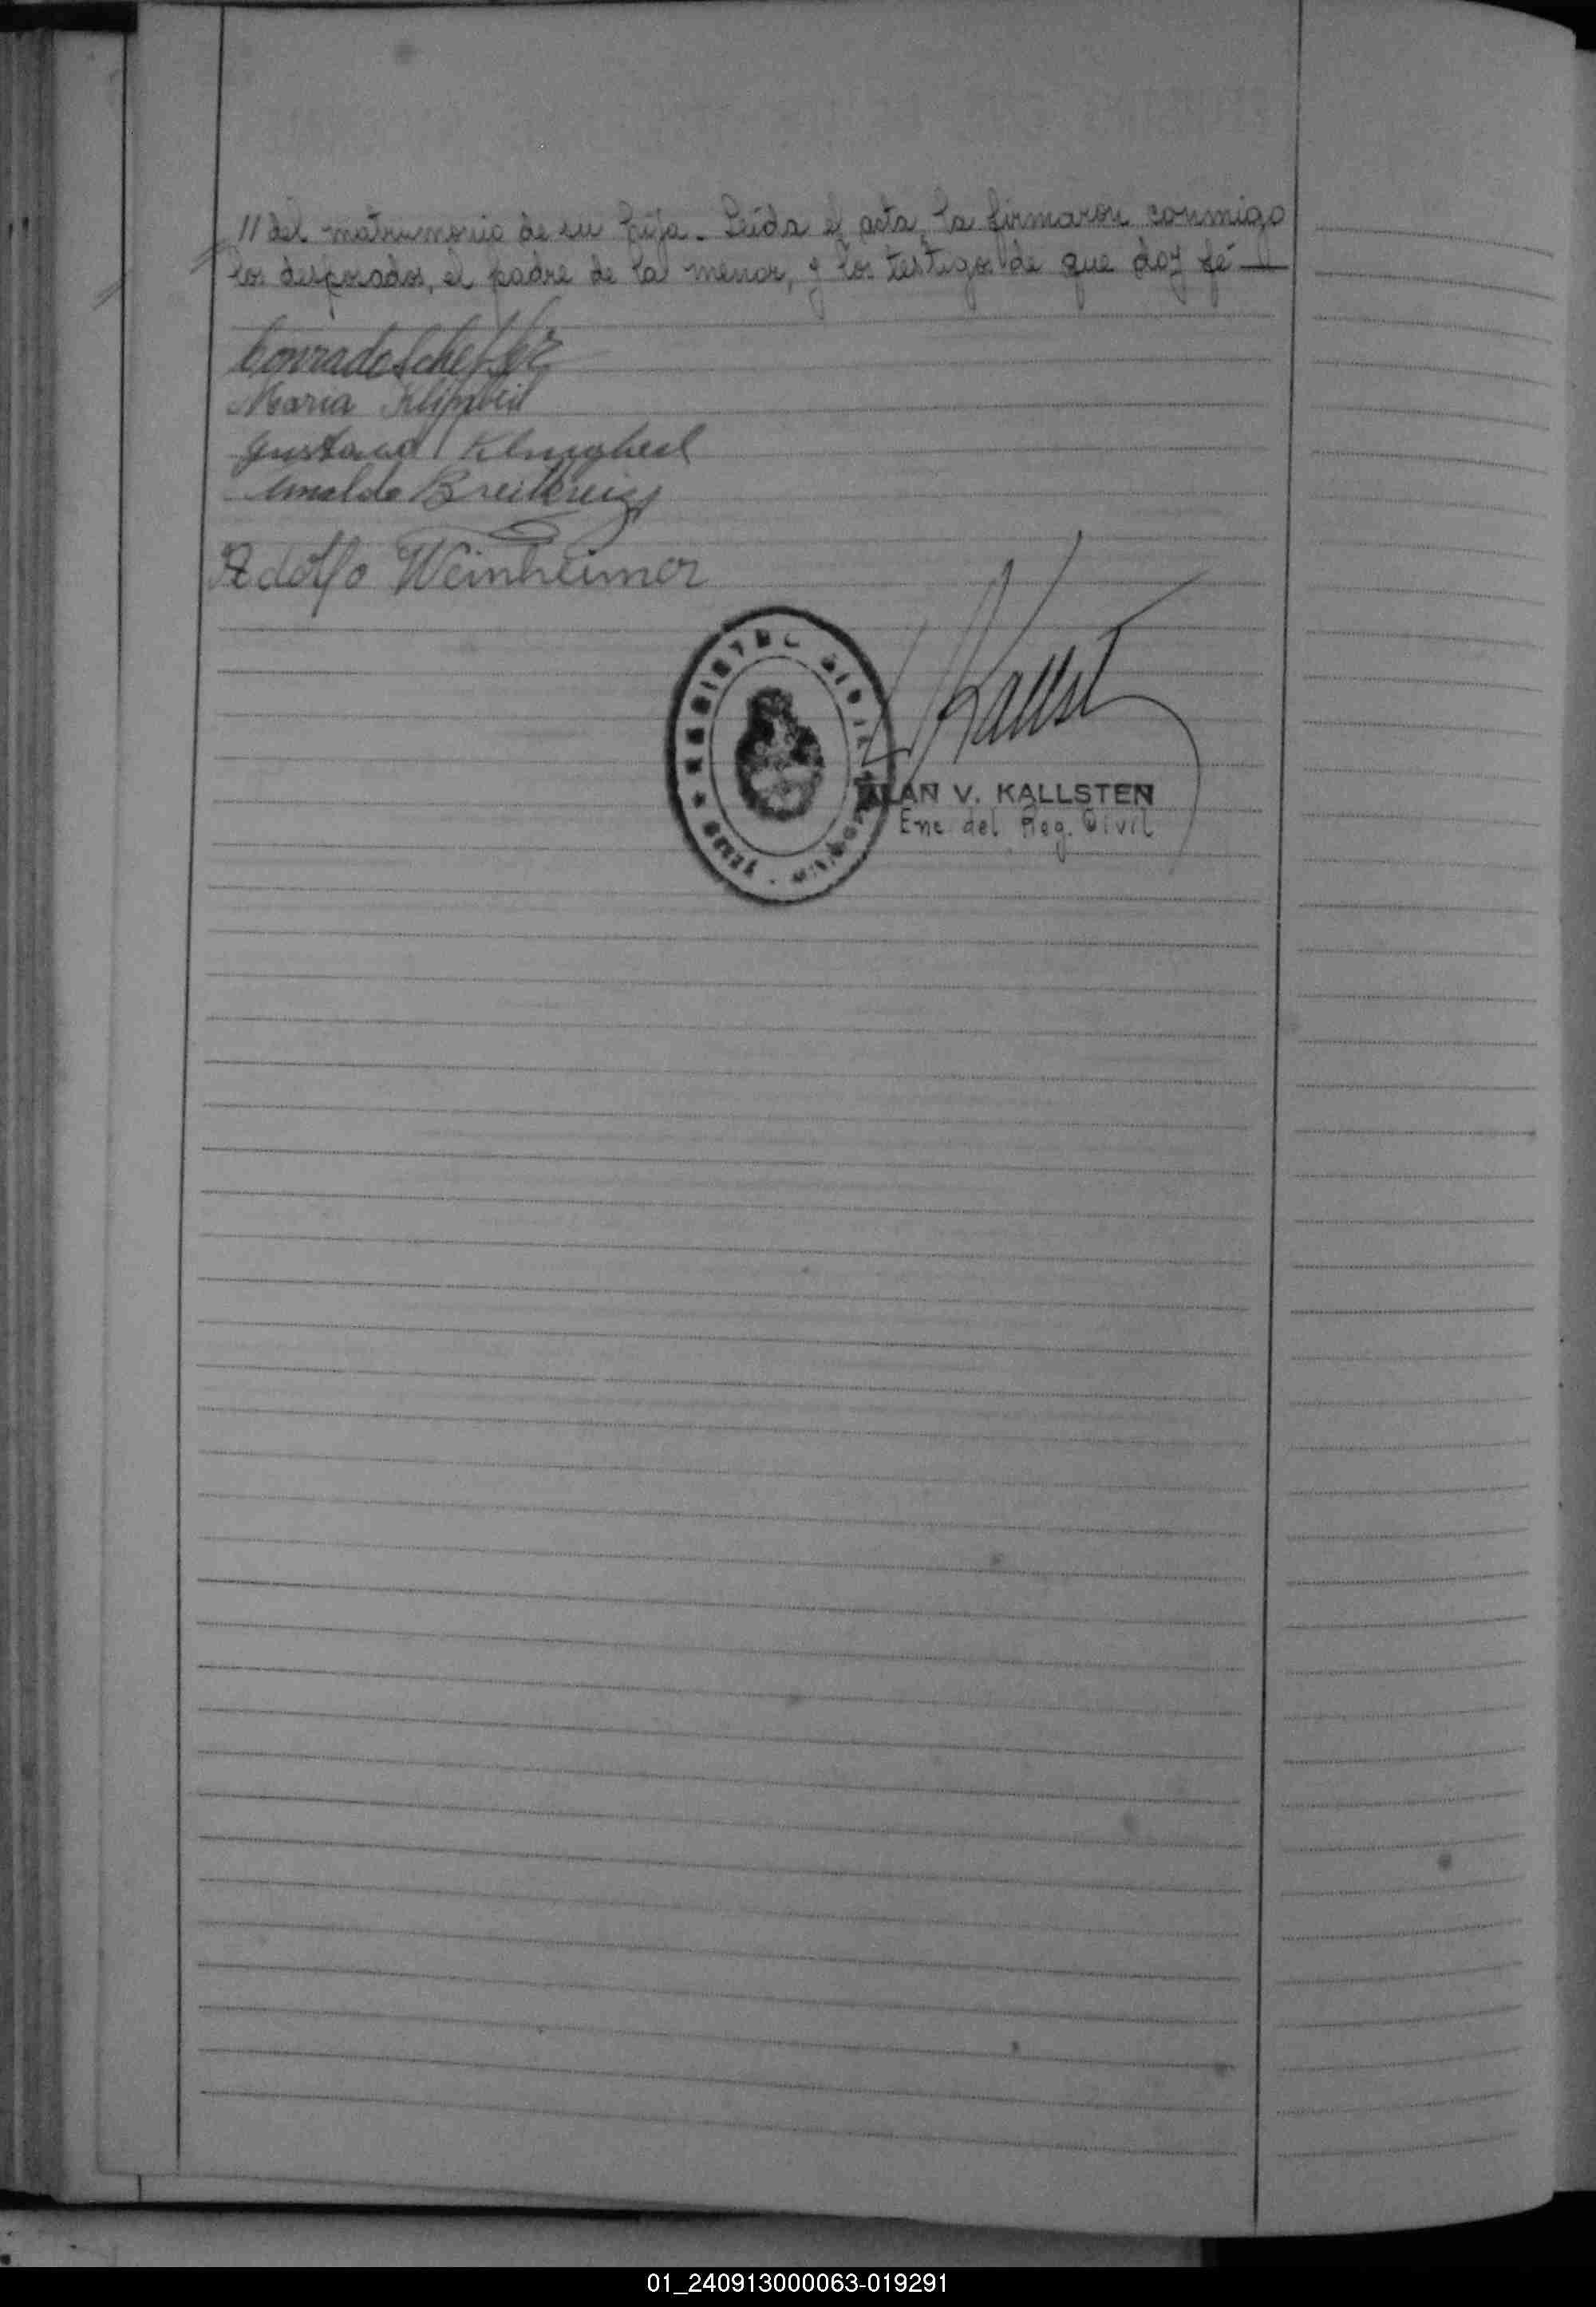 // del matrimonio de su hija. Leída el acta, la firmaron conmigo
los desposados, el padre de la menor, y los testigos de que doy fé
Conrado Scheffer
Maria
Gustavo
Arnaldo Breitkreuz
Adolfo Weinheimer
REGISTRO CIVIL
Kallst
ALAN V. KALLSTEN
Enc. del Reg. Civil
01_240913000063-019291